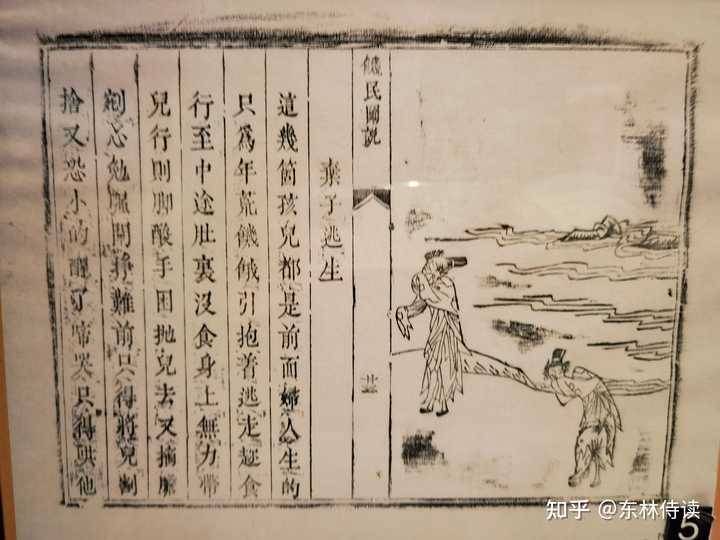 饑民圖說
棄子逃生
這幾箇孩兒都是前面婦人生的
只爲年荒饑餓引抱着逃走趁食
行至中途肚裏没食身上無力帶
兒行則脚酸手困抛兒去又摘
剜心勉掙難前只得將兒割
捨又恐小的醒了啼哭只得哄他
5
知乎 @东林侍读